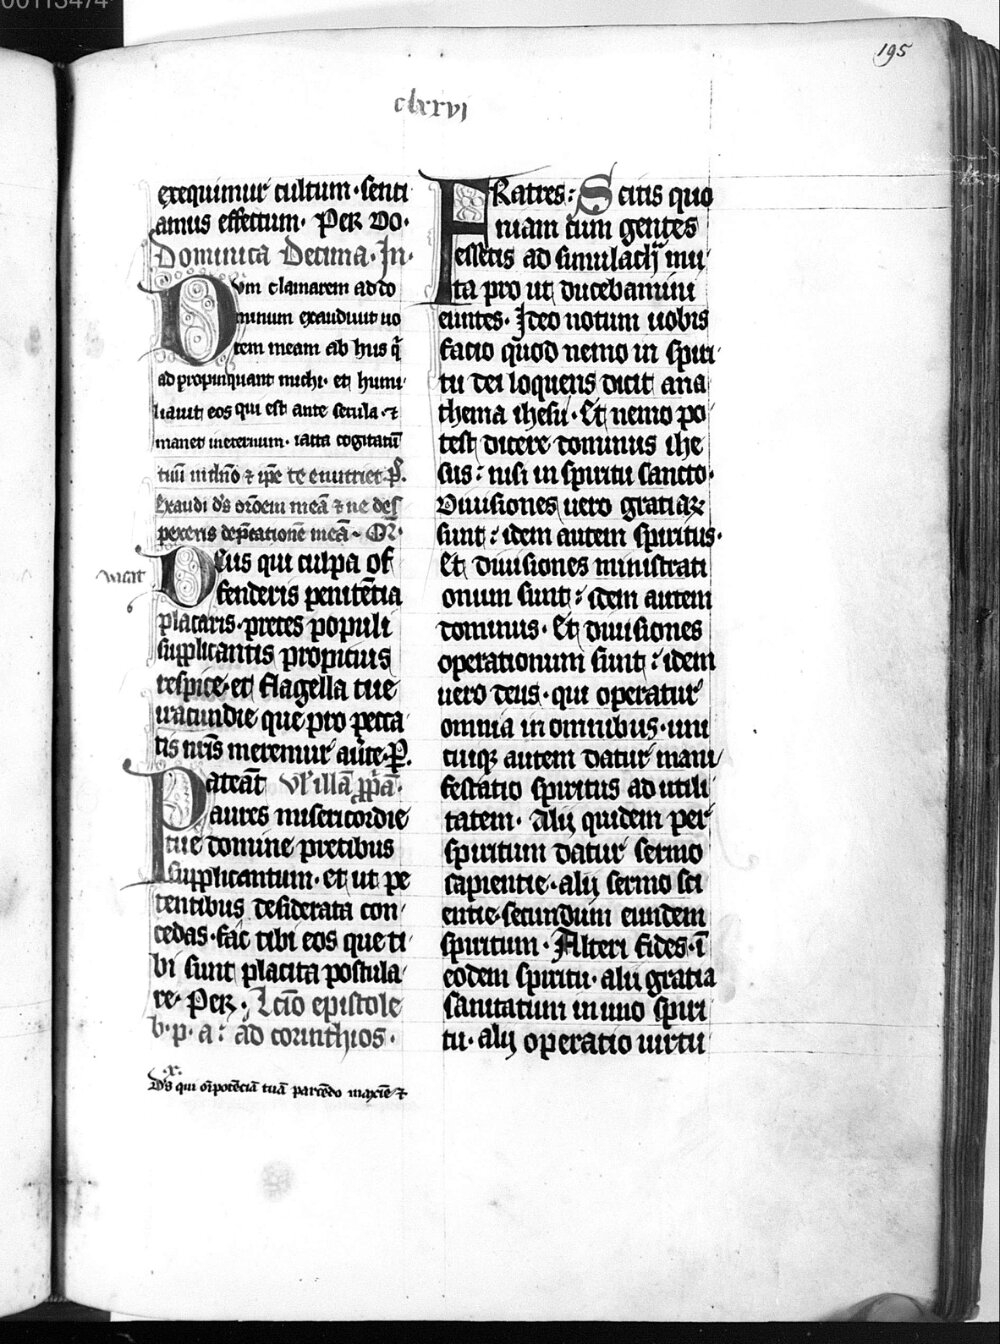 195
clxxvi
exequimur cultum · senti
amus effectum · Per do ·
Dominica Decima · In ·
Dvm clamarem ad do
minum exaudiuit uo
cem meam ab hiis q̄
ad propinquant michi · et humi
liauit eos qui est ante secula · ⁊
manet ineternum · iacta cogitatū
tuū in dn̄o ⁊ ip̄e te enutriet · p̄s̄ .
Exaudi d̄s or̄oem meā ⁊ ne des
pexeris dep̄cationē meā · Or̄ ·
Deus qui culpa of
fenderis penitētia
placaris · preces populi
supplicantis propicius
respice · et flagella tue
iracundie que pro pecca
tis nr̄is meremur au̅te · P̄ .
Pateāt vl̄ illā
aures misericordie
tue domine precibus
supplicantum · et ut pe
tentibus desiderata con
cedas · fac tibi eos que ti
bi sunt placita postula
re · Per · Lc̄io epistole
b · p · a : ad corinthios ·
.x.
D̄s qui oīpotēciā tuā parcēdo maxīe ⁊
FRatres : Scitis quo
niam cum gentes
essetis ad simulacℏ mu
ta pro ut ducebamini
euntes · Ideo notum uobis
facio quod nemo in spiri
tu dei loquens dicit ana
thema ihesu · Et nemo po
test dicere dominus ihe
sus : nisi in spiritu sancto ·
Diuisiones uero gratiaꝝ
sunt : idem autem spiritus ·
Et diuisiones ministrati
onum sunt : idem autem
dominus · Et diuisiones
operationum sunt : idem
uero deus · qui operatur
omnia in omnibus · uni
cuiqꝫ autem datur mani
festatio spiritus ad utili
tatem · Alij quidem per
spiritum datur sermo
sapientie · alij sermo sci
entie · secundum eundem
spiritum · Alteri fides · ī
eodem spiritu · alij gratia
sanitatum in uno spiri
tu · alij operatio uirtu